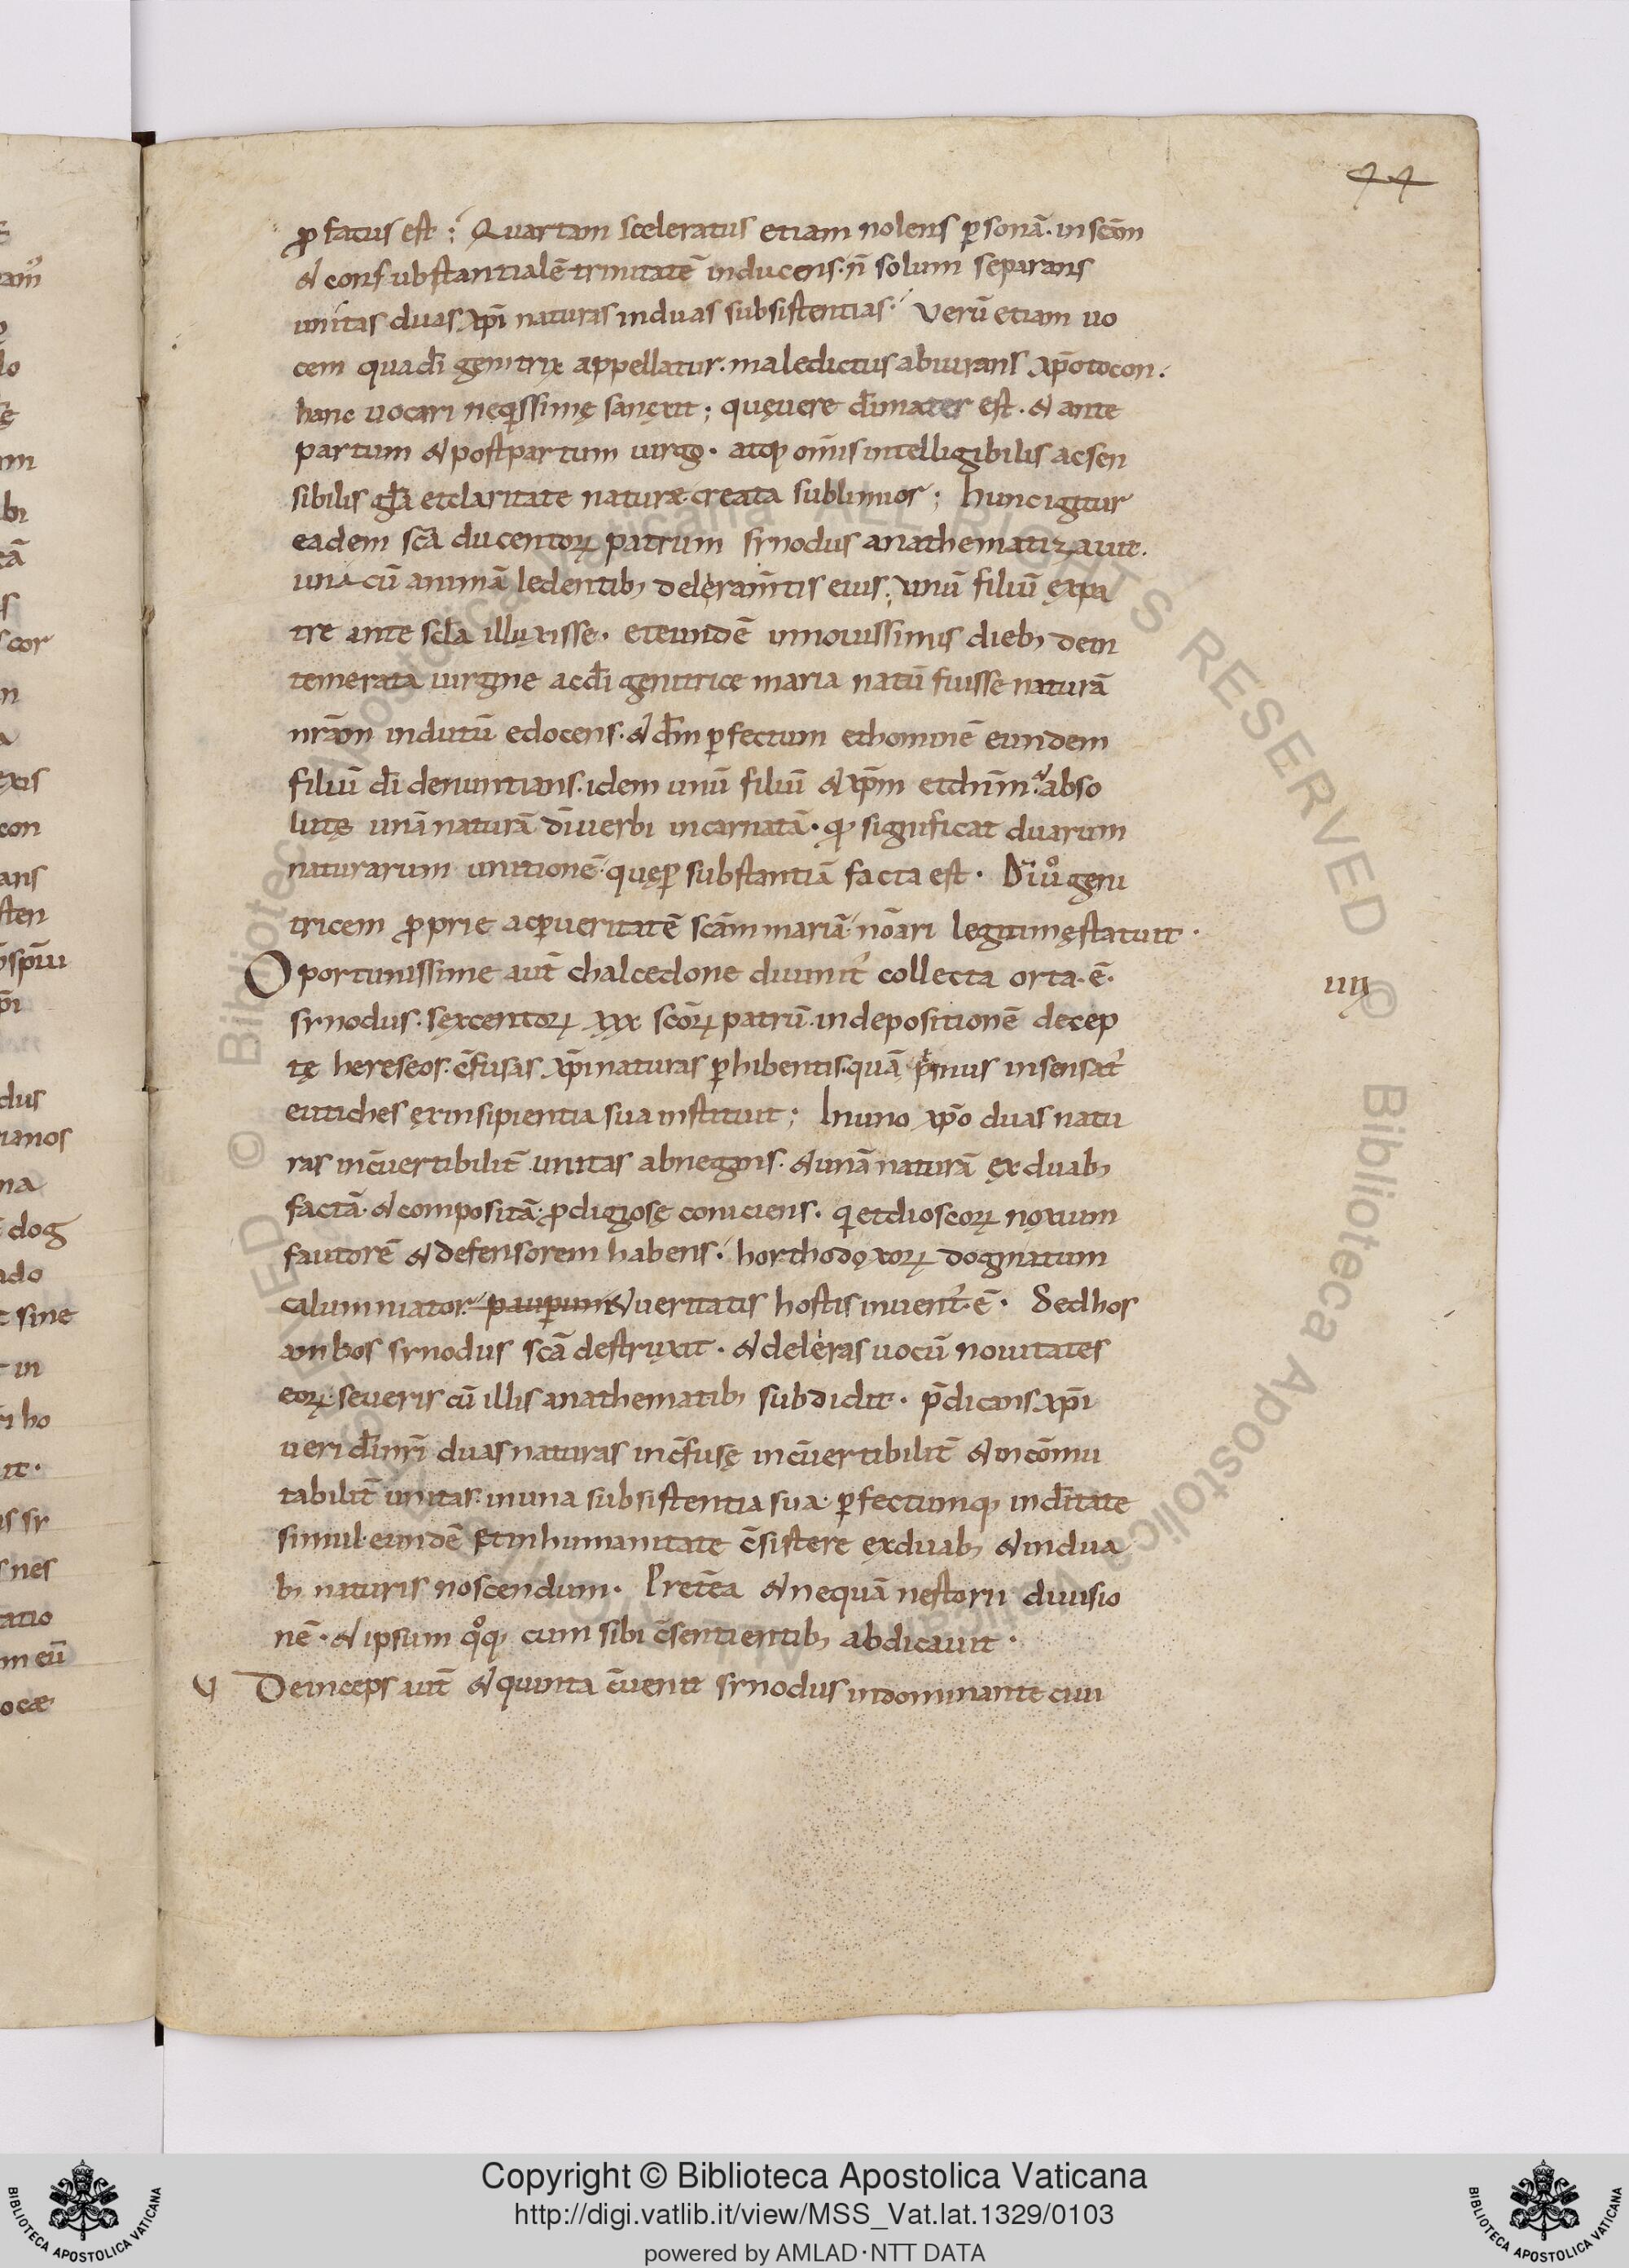 ꝓfatus est; Quartam sceleratus etiam nolens ꝑsonā· in scām
& consubstantialē trinitatē inducens· n̄ solum separans
unitas duas xp̄i naturas in duas subsistentias· verū etiam uo
cem qua dī genitrix appellatur· maledictus abiurans xp̄otocon·
hanc uocari neq̇ssimę sanęxit; quę uere dī mater est· & ante
partum & post partum uirgo· atq; om̄is intelligibilis ac sen
sibilis gl̄a et claritate naturæ creata sublimior; Hunc igitur
eadem sc̄a ducentoꝝ patrum synodus anathematizauit·
una cū animā ledentib; deleram̄tis eius; unū filiū ęx pa
tre ante scl̄a illuxisse· et eundē in nouissimis dieb; de in
temerata uirgine ac dī genitrice maria natū fuisse naturā
nr̄am indutū edocens· & dm̄ ꝑfectum et hominē eundem
filiū dī denuntians· idem unū filiū & xp̄m et dn̄m· & abso
lutę unā naturā dī uerbi incarnatā· qđ significat duarum
naturarum unitionē· quę ꝑ substantiā facta est· Dī ů geni
tricem ꝓprie ac ꝑ ueritatē scām mariā nōari legitimę statuit·
Oportunissime aut̄ chalcedone diuinit᾽ collecta orta· ē·
synodus· sęxcentoꝝ xxx scōꝝ patrū· in depositionē decep
tę hereseos· c̄fusas xp̄i naturas ꝑhibentis· quā ṗmus insensat᾽
eutiches ęx insipientia sua instituit; In uno xp̄o duas natu
ras inc̄uertibilit̄ unitas abnegans· & unā naturā ęx duab;
factā· & compositā· ꝓdigiosę coniciens· q̇ et dioscoꝝ noxium
fautorē & defensorem habens· horthodoxoꝝ dogmatum
calumniator· & ueritatis hostis inuent᾽· ē· Sed hos
ambos synodus scā destruxit· & deleras uocū nouitates
eoꝝ· seueris cū illis anathematib; subdidit· p̄dicans xp̄i
ueri dī nr̄i duas naturas inc̄fusę inc̄uertibilit̄ & incōmu
tabilit̄ unitas· in una subsistentia sua· ꝑfectumq; in dītate
simul· eundē et in humanitate c̄sistere ęx duab; & in dua
b; naturis noscendum· Pret̄ea & nequā nestorii diuisio
nē· & ipsum q̊q; cum sibi c̄sentientib; abdicauit·
Deinceps aut̄ & quinta c̄uenit synodus indominante ciui
IIII
V
Copyright © Biblioteca Apostolica Vaticana
http://digi.vatlib.it/view/MSS_Vat.lat.1329/0103
powered by AMLAD·NTT DATA